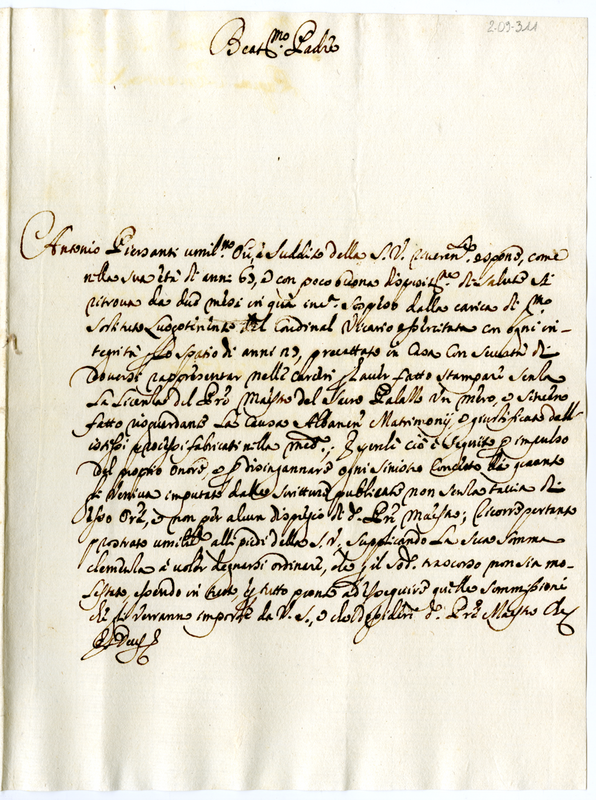 2-09-311
Beat.mo Padre
Antonio Piersanti umil.mo Or.e, e Suddito della S. V. riverent.e espone, come
nella sua età di anni 63, e con poco buona disposit.ne di salute si
ritrova da due mesi in quà in escluso dalla carica di
Sostituto Luogotenente del Cardinal Vicario esercitata con ogni in-
tegrità lo spatio di anni 23, precettato in Casa con sicurtà di
doversi rappresentar nelle carceri p haver fatto stampare senza
la licenza del P.re Maestro del Sacro Palazzo un mero, e sincero
fatto risguardante la Causa Albanen Matrimonij, e giustificato dall'
istessi processi fabricati nella med.; E perche ciò è seguito p impulso
del proprio onore, e p disingannare ogni sinistro concetto di quanto
si veniva imputato dalle scritture publicate non senza taccia di
esso Or.e, e non per alcun dispregio di d.o P.re Maestro; Ricorre pertanto
prostrato umilm.te alli piedi della S. V. supplicando la sua somma
clemenza à voler degnarsi ordinare, che p il sud.o trascorso non sia mo-
lestato, essendo in tutto e p tutto pronto ad eseguire quelle sommissioni
che li verranno imposte da V. S., e dal d.o P.re Maestro Che